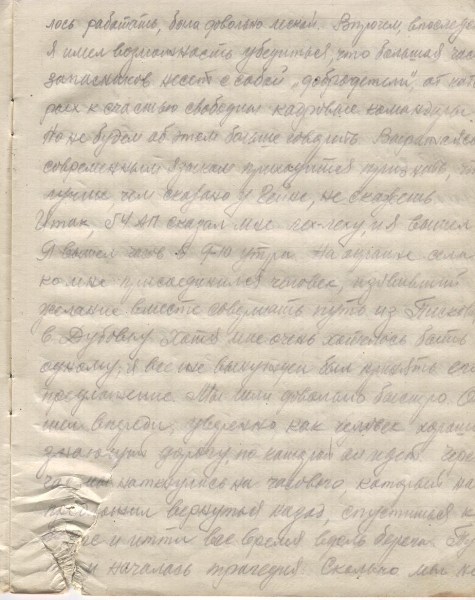 лось работать, была довольно лесной. Впрочем, впоследс
я имел возможность убедиться, что большая час
запасников несет с собой „добродетели“, от кот
рых к счастью свободны кадровые командиры
Но не будем об этом больше говорить.
современным языком придется признать, что
лучше чем сказано у Гейне, не скажешь
Итак, 54 АП сказал мне лех-леху, и я вышел
Я вышел часов в 9-10 утра. На окраине села
ко мне присоединился человек, изъявивший
желание вместе совершить путь из
в Дубовку. Хотя мне очень хотелось быть
одному, я все же вынужден был принять его
предложение. Мы шли довольно быстро. О
шел впереди, уверенно как человек хорошо
знающий дорогу, по которой он идет. Чер
час мы наткнулись на часового, который на
вернуться назад, спуститься к
и итти все время вдоль берега.
и началась трагедия. Сколько мы